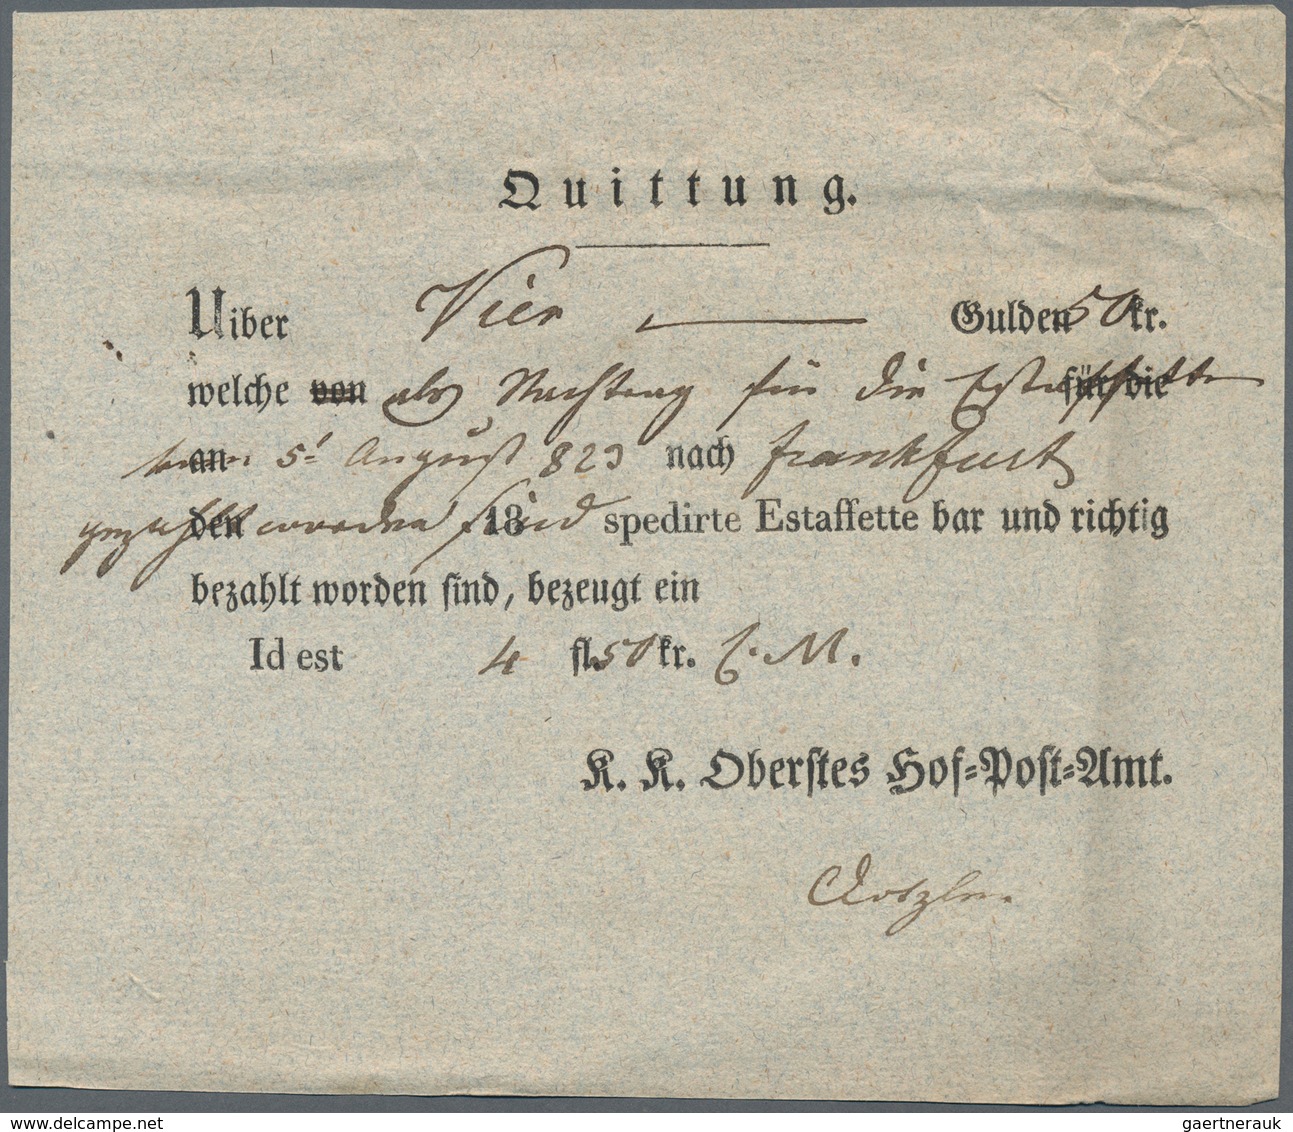 Quittung.
Uiber Vier Gulden 50 kr.
welche von als Nachtrag für die Estaffette für die
an vom 5t August 823 nach Frankfurt
den gezahlt worden sind 18 spedirte Estaffette bar und richtig
bezahlt worden sind, bezeugt ein
Id est 4 fl. 50 kr. C. M.
K. K. Oberstes Hof=Post=Amt.
gaertnerauk